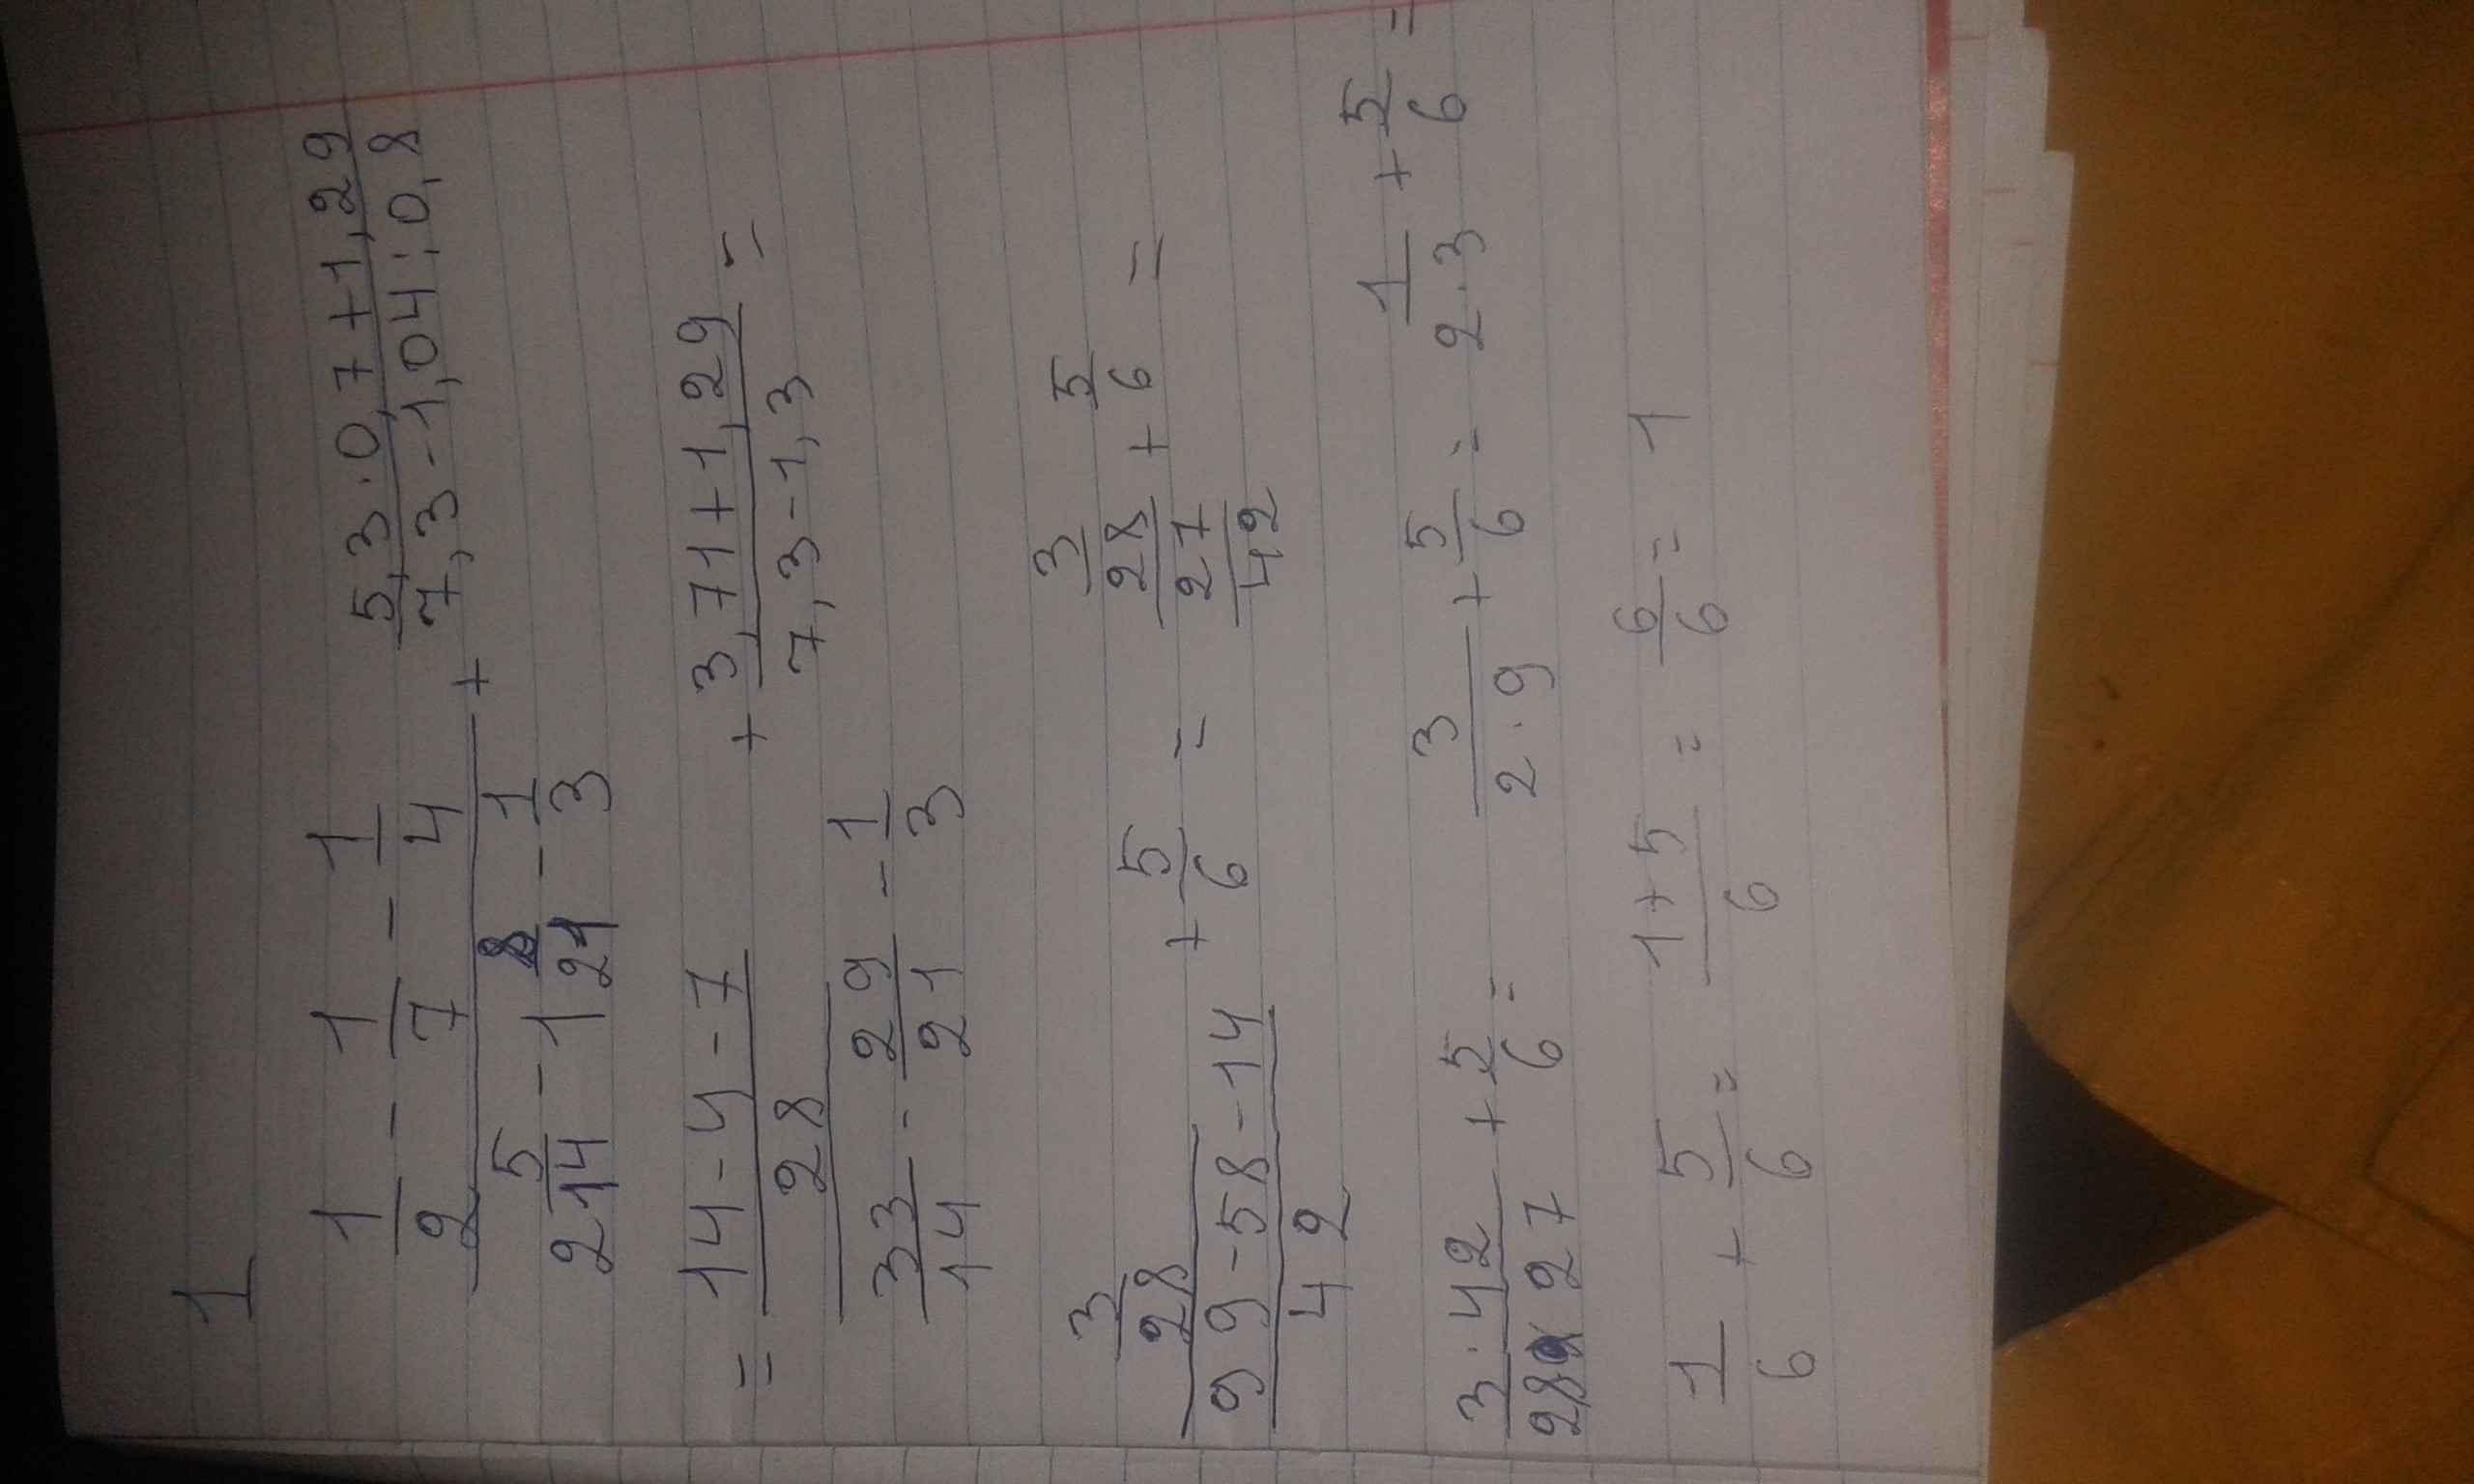 1
1/2 - 1/7 - 1/4 / 2 5/14 - 1 8/21 - 1/3 + 5,3·0,7+1,29 / 7,3-1,04:0,8
= 14-4-7 / 28 / 33/14 - 29/21 - 1/3 + 3,71+1,29 / 7,3-1,3 =
3/28 / 99-58-14 / 42 + 5/6 = 3/28 / 27/42 + 5/6 =
3·42 / 28·27 + 5/6 = 3 / 2·9 + 5/6 = 1 / 2·3 + 5/6 =
1/6 + 5/6 = 1+5 / 6 = 6/6 = 1